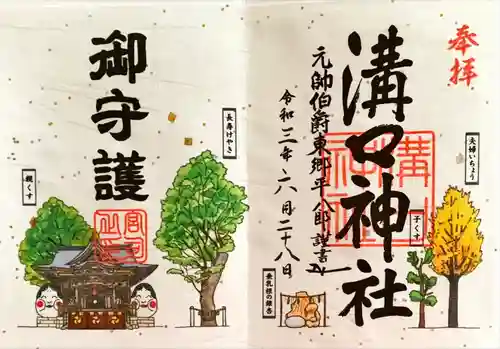 奉拝
溝口神社
元帥伯爵東郷平八郎謹書
令和三年六月二十八日
夫婦いちょう
子くす
御守護
長寿けやき
親くす